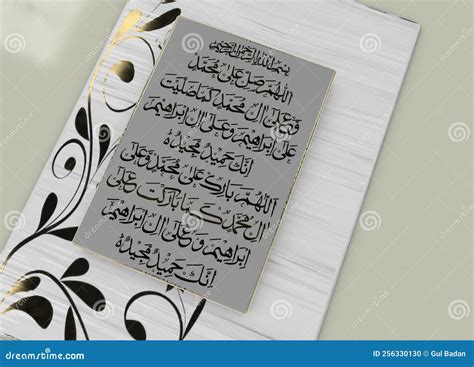 بسم الله الرحمن الرحيم
اللهم صل على محمد
وعلى آل محمد كما صليت
على إبراهيم وعلى آل إبراهيم
إنك حميد مجيد
اللهم بارك على محمد وعلى
آل محمد كما باركت على
إبراهيم وعلى آل إبراهيم
إنك حميد مجيد
dreamstime
ID 256330130 © Gul Badan